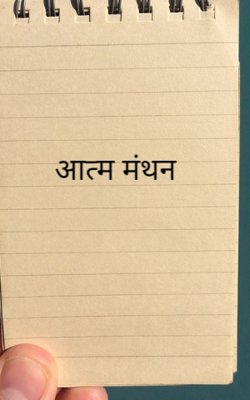 आत्म मंथन